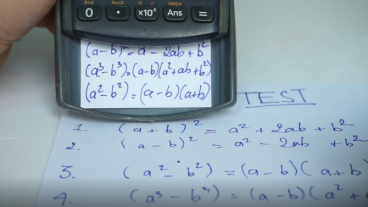 0 • ×10ˣ Ans =
(a-b)² = a² - 2ab + b²
(a³-b³) = (a-b)(a²+ab+b²)
(a²-b²) = (a-b)(a+b)
TEST
1. (a+b)² = a² + 2ab + b²
2. (a-b)² = a² - 2ab + b²
3. (a²-b²) = (a-b)(a+b)
4. (a³-b³) = (a-b)(a²+